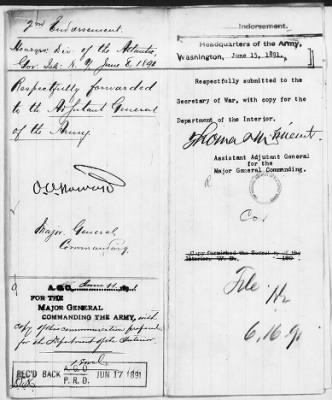 2nd Endorsement.
Hdqrs. Div. of the Atlantic
Gov. Isl. N.Y. June 8, 1891
Respectfully forwarded
to the Adjutant General
of the Army.
O.O. Howard
Major General
Commanding.
A.G.O.
FOR THE
MAJOR GENERAL
COMMANDING THE ARMY, with
copy of this communication prepared
for the Department of the Interior.
1 Encl
REC'D BACK A.G.O. P.R.D. JUN 17 1891
Indorsement.
Headquarters of the Army,
Washington, June 15, 1891.
Respectfully submitted to the
Secretary of War, with copy for the
Department of the Interior.
Thomas M. Vincent
Assistant Adjutant General
for the
Major General Commanding.
Copy furnished the
Interior,
File
6.16.91